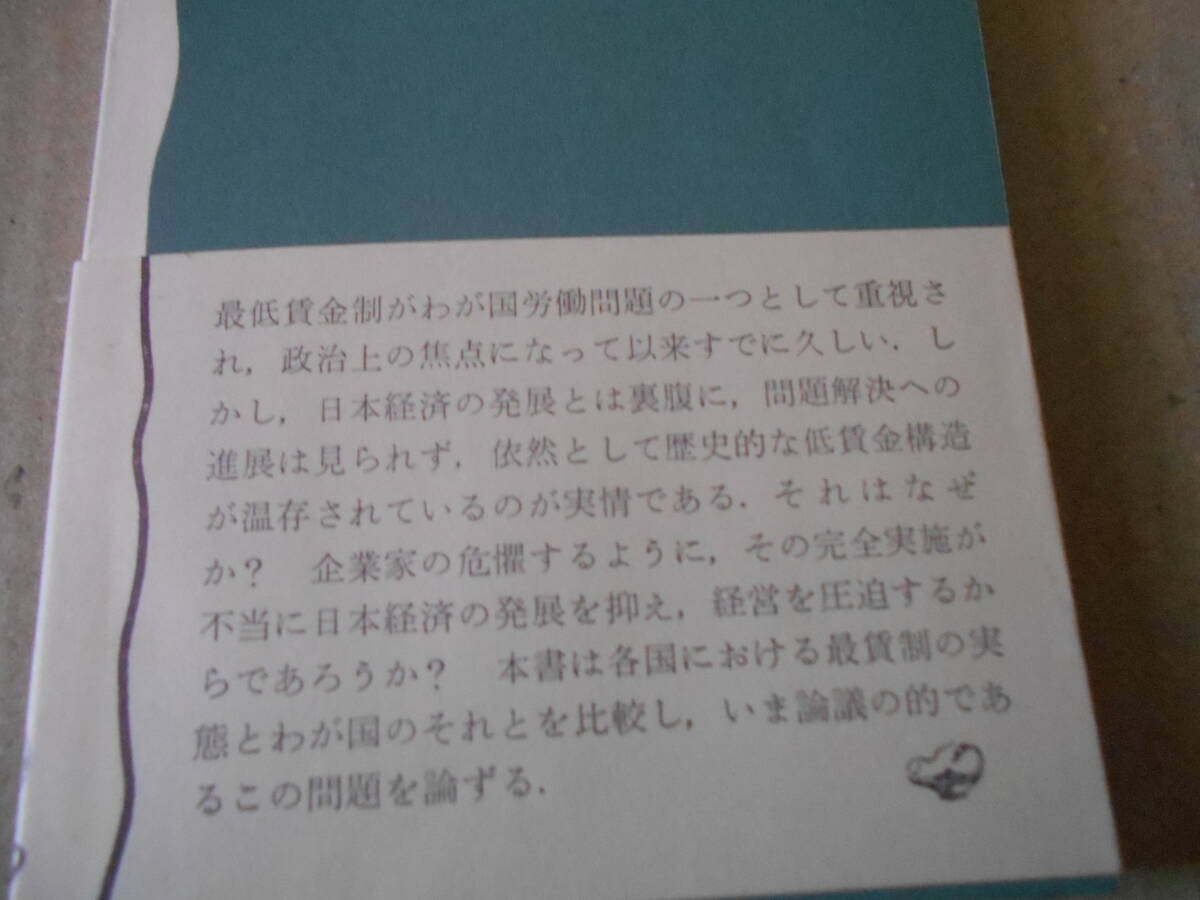 最低賃金制がわが国労働問題の一つとして重視さ
れ，政治上の焦点になって以来すでに久しい．し
かし，日本経済の発展とは裏腹に，問題解決への
進展は見られず，依然として歴史的な低賃金構造
が温存されているのが実情である．それはなぜ
か？　企業家の危懼するように，その完全実施が
不当に日本経済の発展を抑え，経営を圧迫するか
らであろうか？　本書は各国における最賃制の実
態とわが国のそれとを比較し，いま論議の的であ
るこの問題を論ずる．